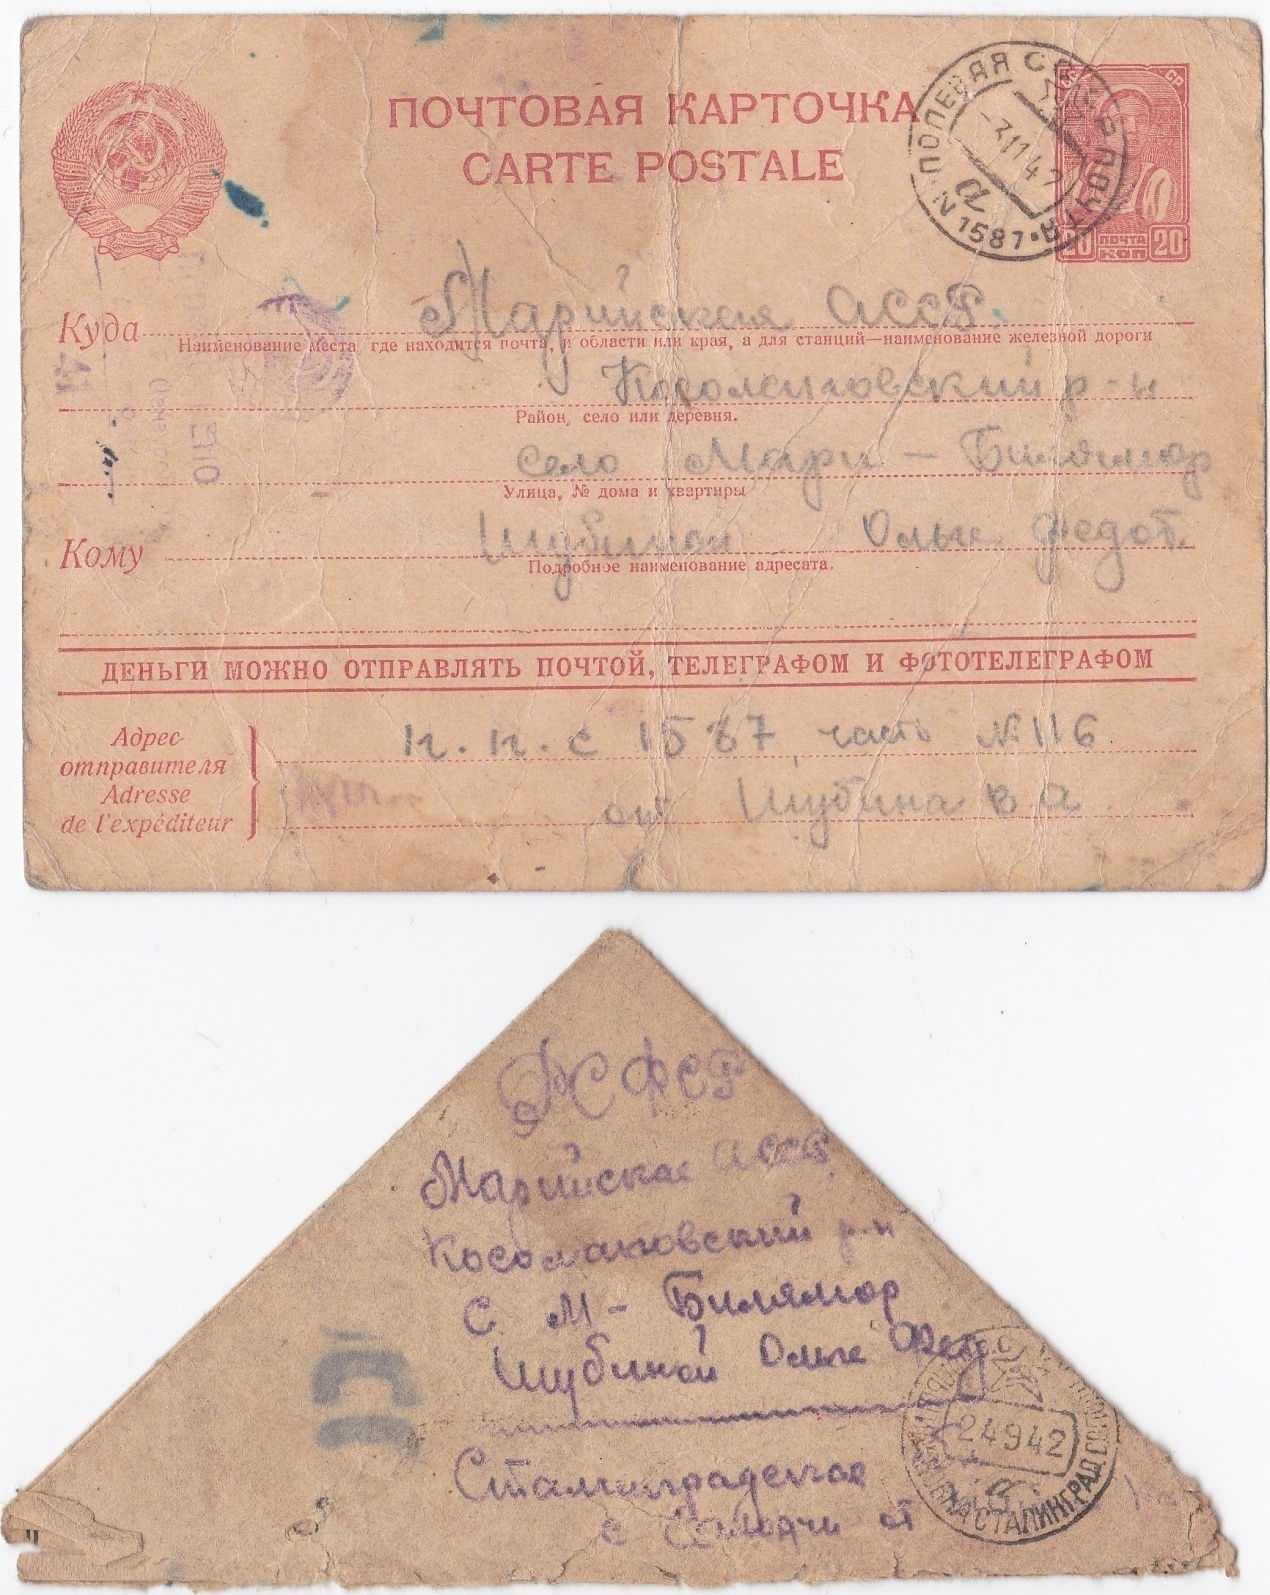 ПОЧТОВАЯ КАРТОЧКА
CARTE POSTALE
ПОЛЕВАЯ ПОЧТА
N 1587
a
20 ПОЧТА 20
КОП
Куда Марийская АССР.
Наименование места, где находится почта, и области или края, а для станций—наименование железной дороги
Косолаповский р-н
Район, село или деревня.
село Мари-Билямор
Улица, № дома и квартиры
Кому Шубиной Ольге Федот.
Подробное наименование адресата.
ДЕНЬГИ МОЖНО ОТПРАВЛЯТЬ ПОЧТОЙ, ТЕЛЕГРАФОМ И ФОТОТЕЛЕГРАФОМ
Адрес
отправителя
Adresse
de l'expéditeur
п. п. с 1587 часть № 116
от Шубина В. А.
РСФСР
Марийская АССР
Косолаповский р-н
С. М-Билямор
Шубиной Ольге Фед.
24 9 42
a
СТАЛИНГРАД
Сталинградская
с Солодчи от